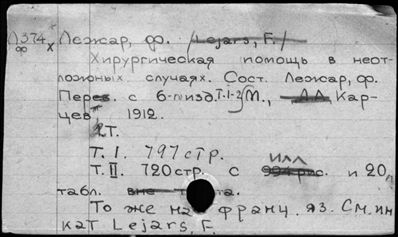 Л374 Лежар, ф. /Lejars, F./
ф х
Хирургическая помощь в неот-
ложных случаях. Сост. Лежар, ф.
Перев. с 6-гизд. Т.1-2 М., Кар-
цев, 1912.
2Т.
Т. I. 797 стр.
Т. II. 720 стр. с илл и 20
табл. вне
То же на франц. яз. См. ин
кат Lejars, F.